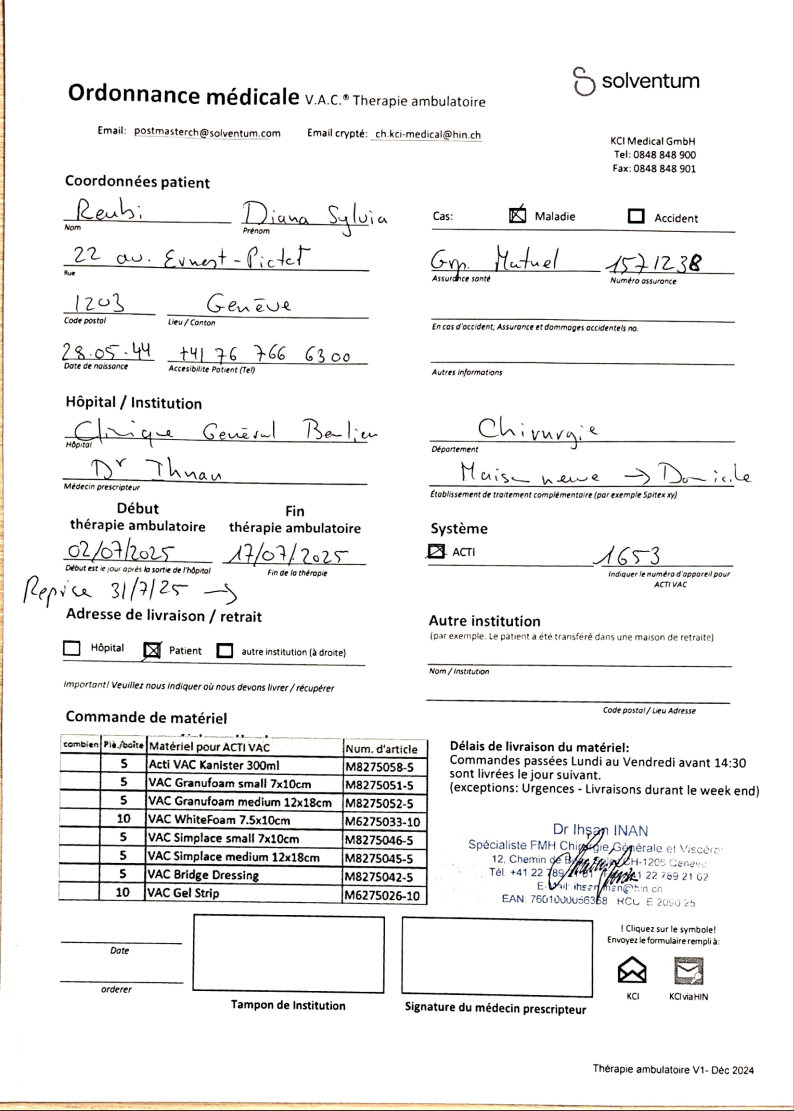 solventum
Ordonnance médicale V.A.C.® Therapie ambulatoire
Email: postmasterch@solventum.com Email crypté: ch.kci-medical@hin.ch
KCI Medical GmbH
Tel: 0848 848 900
Fax: 0848 848 901
Coordonnées patient
Reubi Diana Sylvia
Nom Prénom
Cas: Maladie Accident
22 av. Ernest-Pictet
Rue
Grp. Mutuel 1571238
Assurance santé Numéro assurance
1203 Genève
Code postal Lieu / Canton
En cas d'accident, Assurance et dommages accidentels no.
28.05.44 +41 76 766 6300
Date de naissance Accesibilite Patient (Tel)
Autres informations
Hôpital / Institution
Clinique Général Beaulieu
Hôpital
Chirurgie
Département
Dr
Médecin prescripteur
Maison neuve → Domicile
Établissement de traitement complémentaire (par exemple Spitex xy)
Début
thérapie ambulatoire
Fin
thérapie ambulatoire
02/07/2025 17/07/2025
Début est le jour après la sortie de l'hôpital Fin de la thérapie
Système
ACTI 1653
Indiquer le numéro d'appareil pour
ACTI VAC
Reprise 31/7/25 →
Adresse de livraison / retrait
Hôpital Patient autre institution (à droite)
Important! Veuillez nous indiquer où nous devons livrer / récupérer
Autre institution
(par exemple. Le patient a été transféré dans une maison de retraite)
Nom / Institution
Code postal / Lieu Adresse
Commande de matériel
combien Piè./boîte Matériel pour ACTI VAC Num. d'article
5 Acti VAC Kanister 300ml M8275058-5
5 VAC Granufoam small 7x10cm M8275051-5
5 VAC Granufoam medium 12x18cm M8275052-5
10 VAC WhiteFoam 7.5x10cm M6275033-10
5 VAC Simplace small 7x10cm M8275046-5
5 VAC Simplace medium 12x18cm M8275045-5
5 VAC Bridge Dressing M8275042-5
10 VAC Gel Strip M6275026-10
Délais de livraison du matériel:
Commandes passées Lundi au Vendredi avant 14:30
sont livrées le jour suivant.
(exceptions: Urgences - Livraisons durant le week end)
Dr Ihsan INAN
Spécialiste FMH Chirurgie Générale et Viscéra
12, Chemin de CH-1206 Genève
Tél. +41 22 789 22 789 21 02
E-Mail: ihsan.inan@hin.ch
EAN: 7601000056368 RCC: E 2090.25
Date
orderer
Tampon de Institution
Signature du médecin prescripteur
! Cliquez sur le symbole!
Envoyez le formulaire rempli à:
KCI KCI via HIN
Thérapie ambulatoire V1- Déc 2024